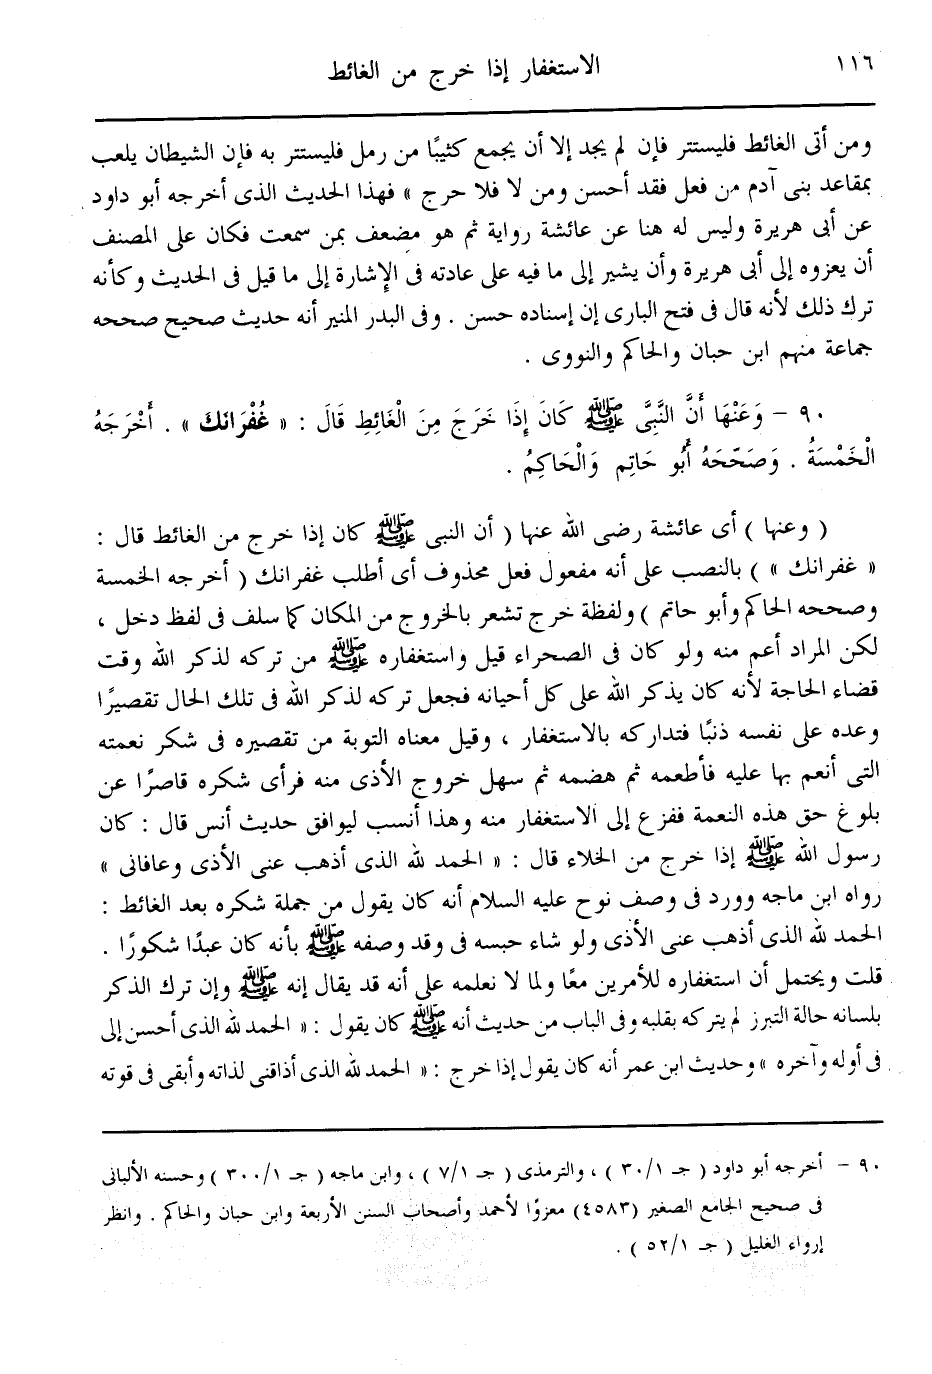 ١١٦
الاستغفار إذا خرج من الغائط
ومن أتى الغائط فليستتر فإن لم يجد إلا أن يجمع كثيبًا من رمل فليستتر به فإن الشيطان يلعب
بمقاعد بنى آدم من فعل فقد أحسن ومن لا فلا حرج » فهذا الحديث الذى أخرجه أبو داود
عن أبى هريرة وليس له هنا عن عائشة رواية ثم هو مضعف بمن سمعت فكان على المصنف
أن يعزوه إلى أبى هريرة وأن يشير إلى ما فيه على عادته فى الإشارة إلى ما قيل فى الحديث وكأنه
ترك ذلك لأنه قال فى فتح البارى إن إسناده حسن . وفى البدر المنير أنه حديث صحيح صححه
جماعة منهم ابن حبان والحاكم والنووى .
٩٠ – وَعَنْهَا أَنَّ النَّبِىَّ ﷺ كَانَ إِذَا خَرَجَ مِنَ الْغَائِطِ قَالَ : « غُفْرَانَكَ » . أَخْرَجَهُ
الْخَمْسَةُ . وَصَحَّحَهُ أَبُو حَاتِمٍ وَالْحَاكِمُ .
( وعنها ) أى عائشة رضى الله عنها ( أن النبى ﷺ كان إذا خرج من الغائط قال :
« غفرانك » ) بالنصب على أنه مفعول فعل محذوف أى أطلب غفرانك ( أخرجه الخمسة
وصححه الحاكم وأبو حاتم ) ولفظة خرج تشعر بالخروج من المكان كما سلف فى لفظ دخل ،
لكن المراد أعم منه ولو كان فى الصحراء قيل واستغفاره ﷺ من تركه لذكر الله وقت
قضاء الحاجة لأنه كان يذكر الله على كل أحيانه فجعل تركه لذكر الله فى تلك الحال تقصيرًا
وعده على نفسه ذنبًا فتداركه بالاستغفار ، وقيل معناه التوبة من تقصيره فى شكر نعمته
التى أنعم بها عليه فأطعمه ثم هضمه ثم سهل خروج الأذى منه فرأى شكره قاصرًا عن
بلوغ حق هذه النعمة ففزع إلى الاستغفار منه وهذا أنسب ليوافق حديث أنس قال : كان
رسول الله ﷺ إذا خرج من الخلاء قال : « الحمد لله الذى أذهب عنى الأذى وعافانى »
رواه ابن ماجه وورد فى وصف نوح عليه السلام أنه كان يقول من جملة شكره بعد الغائط :
الحمد لله الذى أذهب عنى الأذى ولو شاء حبسه فى وقد وصفه ﷺ بأنه كان عبدًا شكورًا .
قلت ويحتمل أن استغفاره للأمرين معًا ولما لا نعلمه على أنه قد يقال إنه ﷺ وإن ترك الذكر
بلسانه حالة التبرز لم يتركه بقلبه وفى الباب من حديث أنه ﷺ كان يقول : « الحمد لله الذى أحسن إلى
فى أوله وآخره » وحديث ابن عمر أنه كان يقول إذا خرج : « الحمد لله الذى أذاقنى لذاته وأبقى فى قوته
٩٠ – أخرجه أبو داود ( جـ ٣٠/١ ) ، والترمذى ( جـ ٧/١ ) ، وابن ماجه ( جـ ٣٠٠/١ ) وحسنه الألبانى
فى صحيح الجامع الصغير (٤٥٨٣) معزوًا لأحمد وأصحاب السنن الأربعة وابن حبان والحاكم . وانظر
إرواء الغليل ( جـ ٥٢/١ ) .